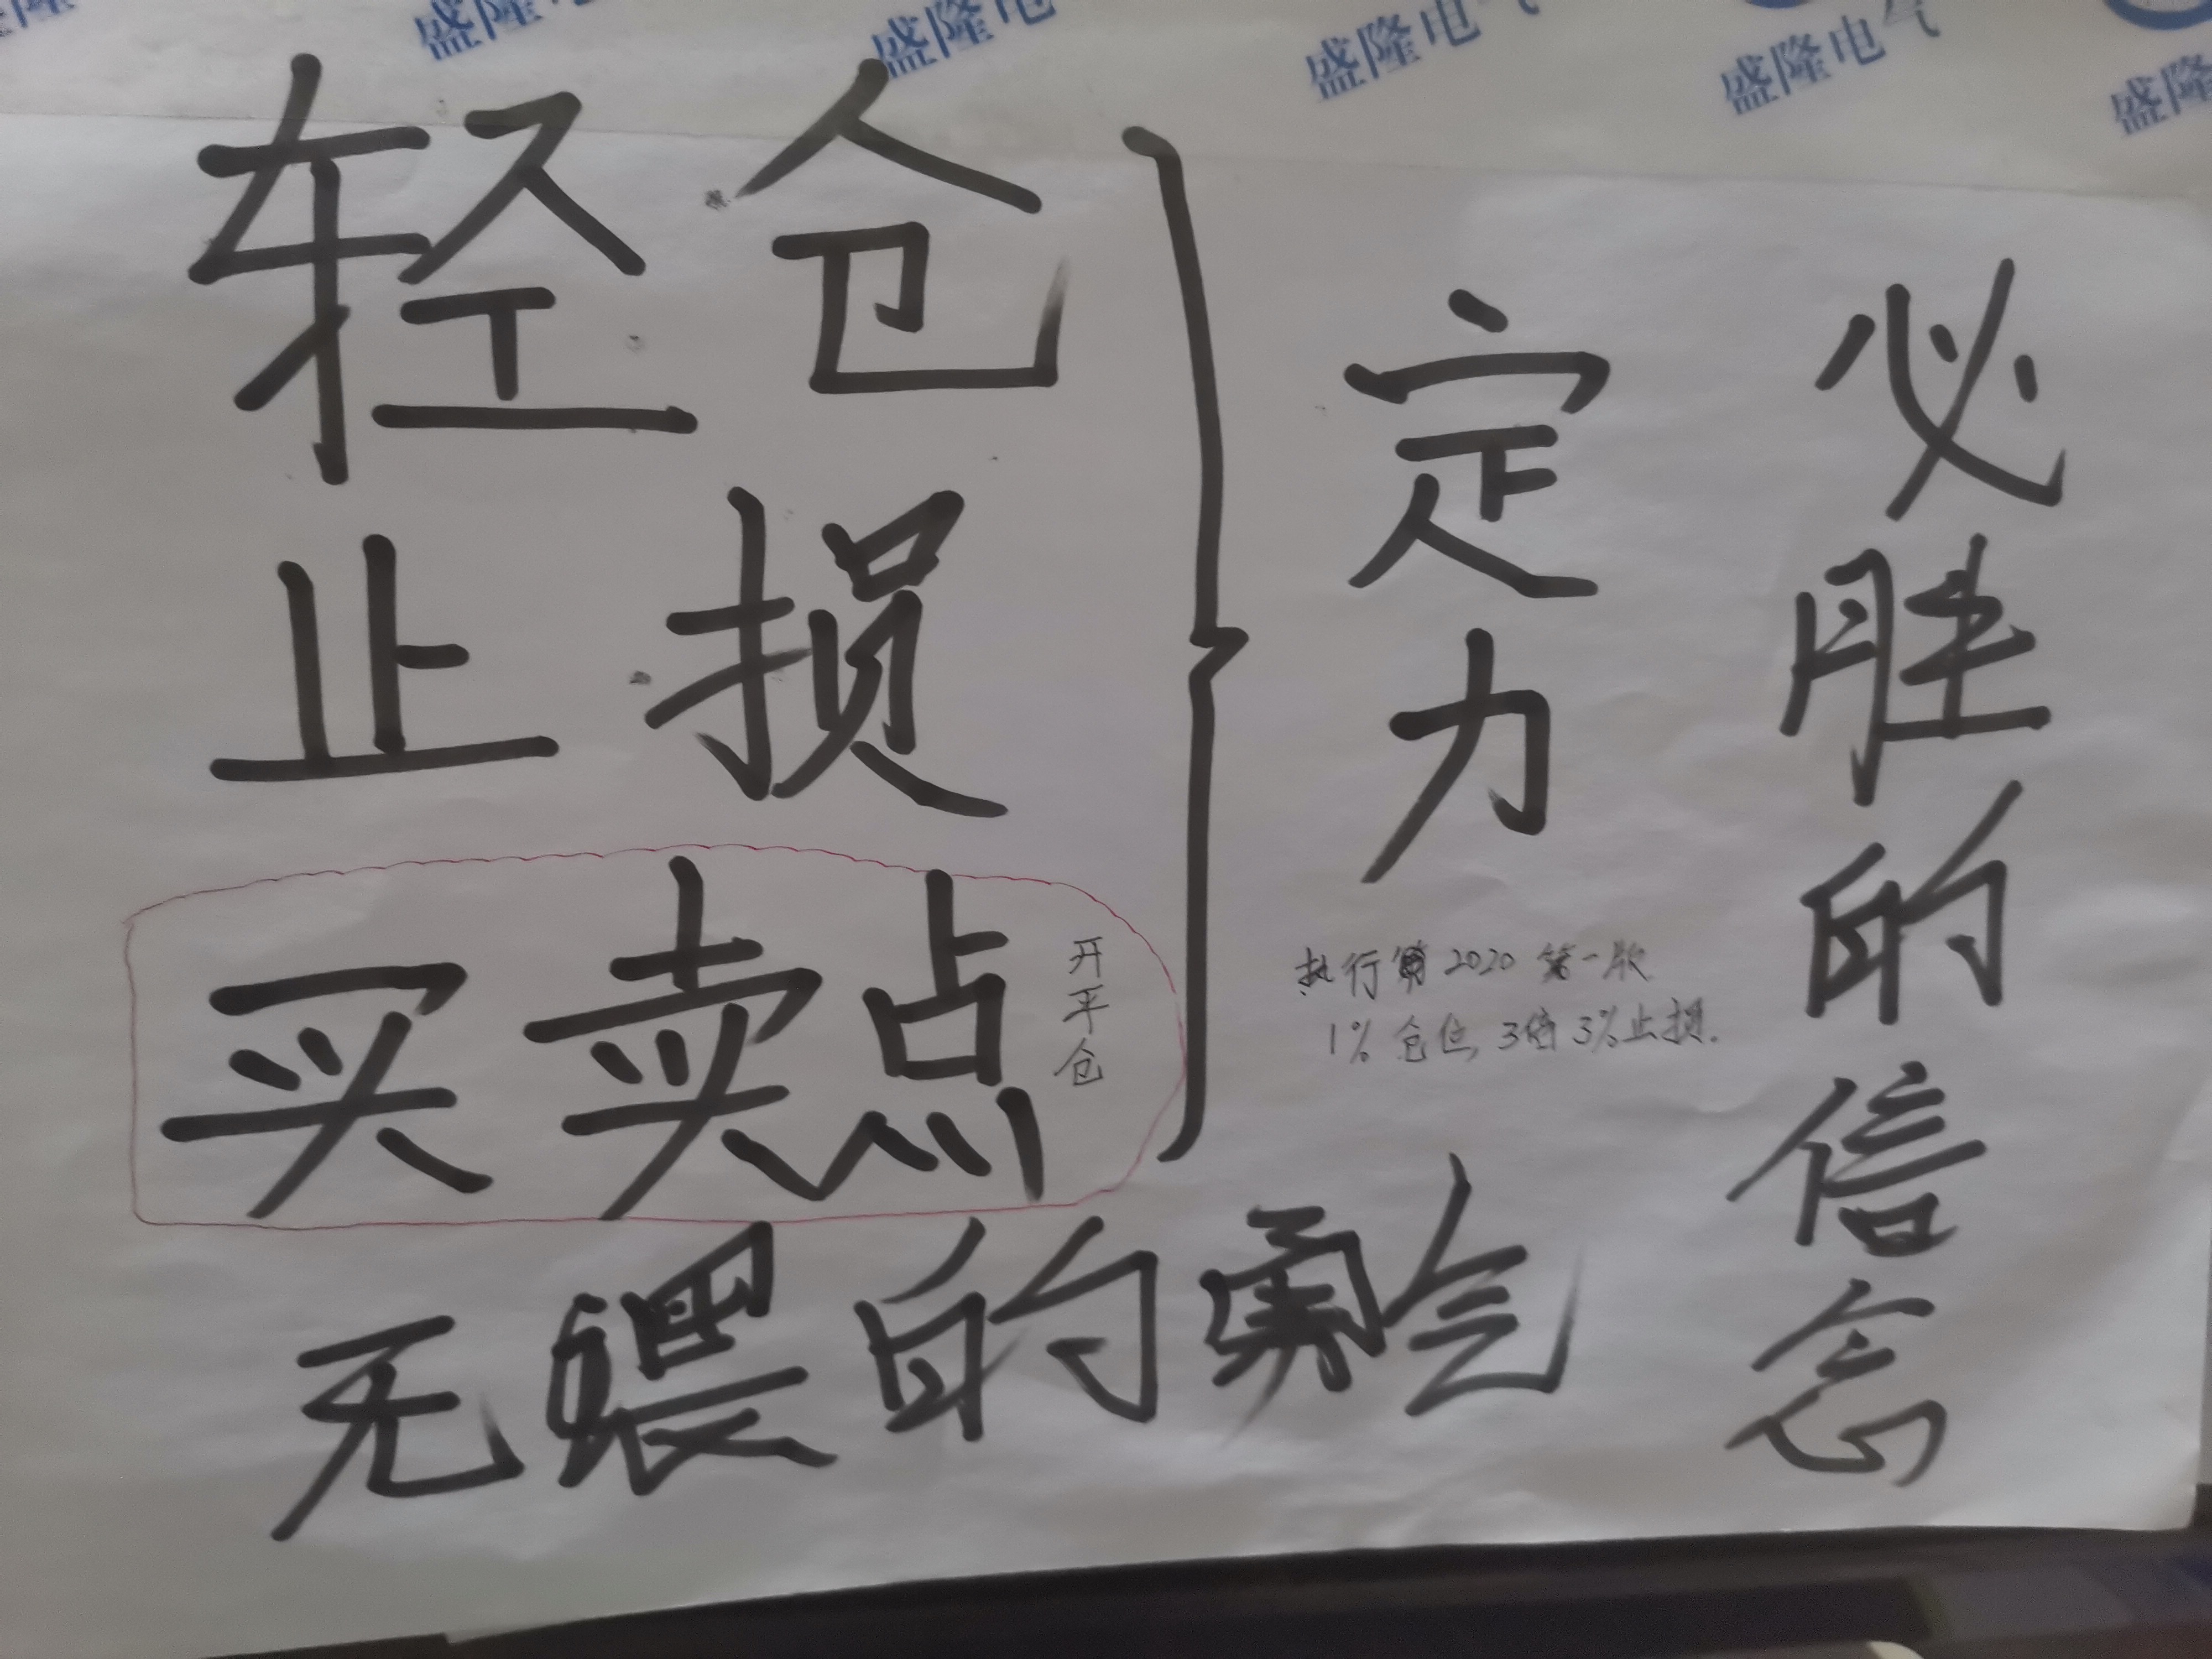 盛隆电气 盛隆电气 盛隆电气 盛隆电气 盛隆
轻仓
止损
买卖点
开平仓
定力
执行 2020 第一版
1%仓位, 3倍 3%止损.
必胜的信念
无畏的勇气